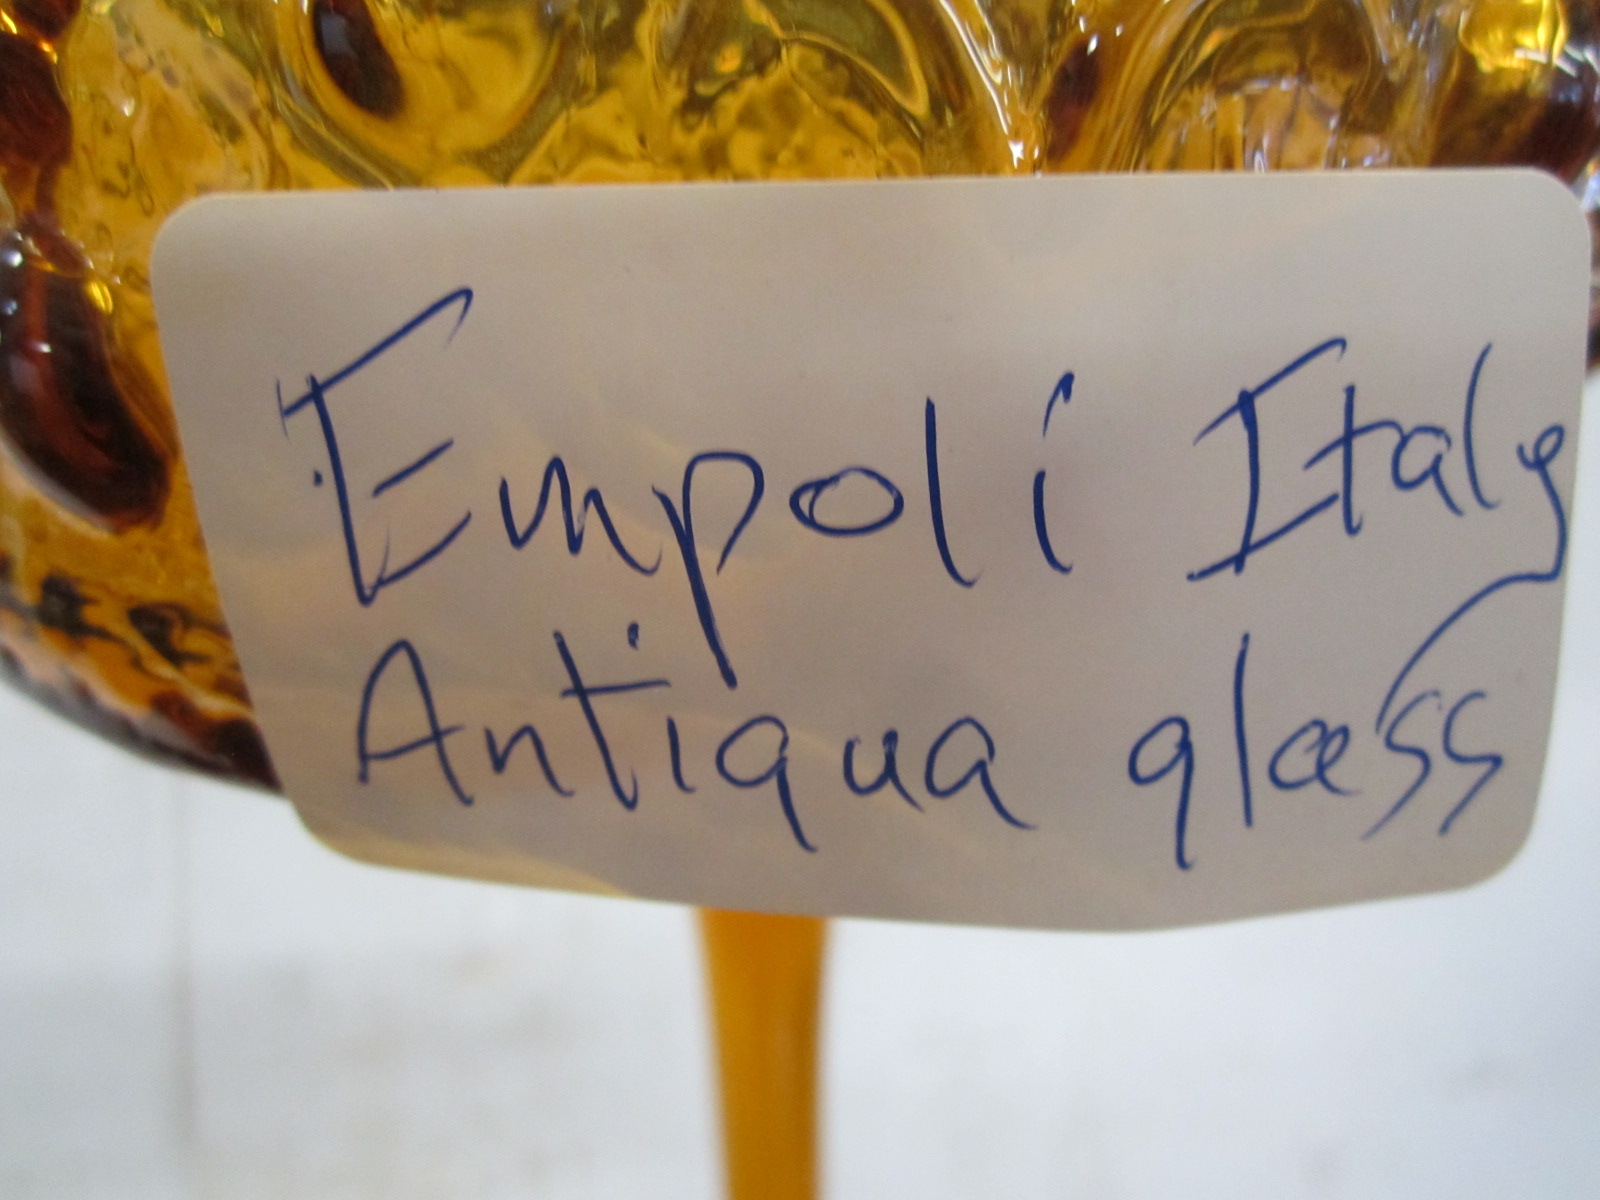 Empoli Italy
Antiqua glass